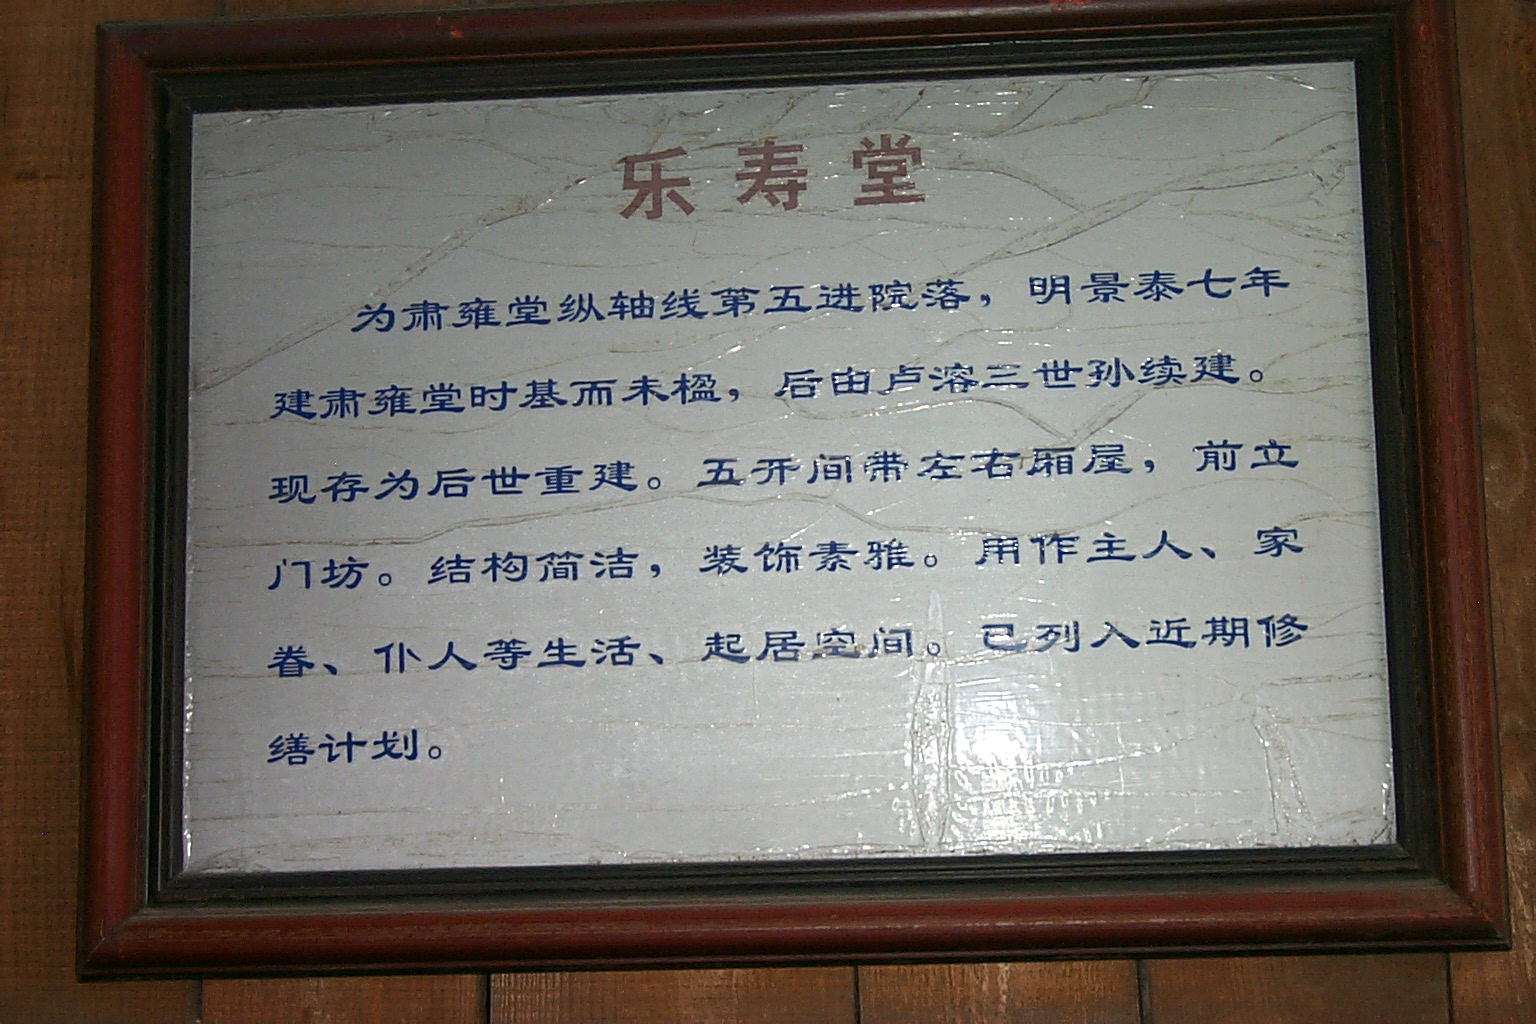 乐寿堂
为肃雍堂纵轴线第五进院落，明景泰七年
建肃雍堂时基而未楹，后由卢溶三世孙续建。
现存为后世重建。五开间带左右厢屋，前立
门坊。结构简洁，装饰素雅。用作主人、家
眷、仆人等生活、起居空间。已列入近期修
缮计划。